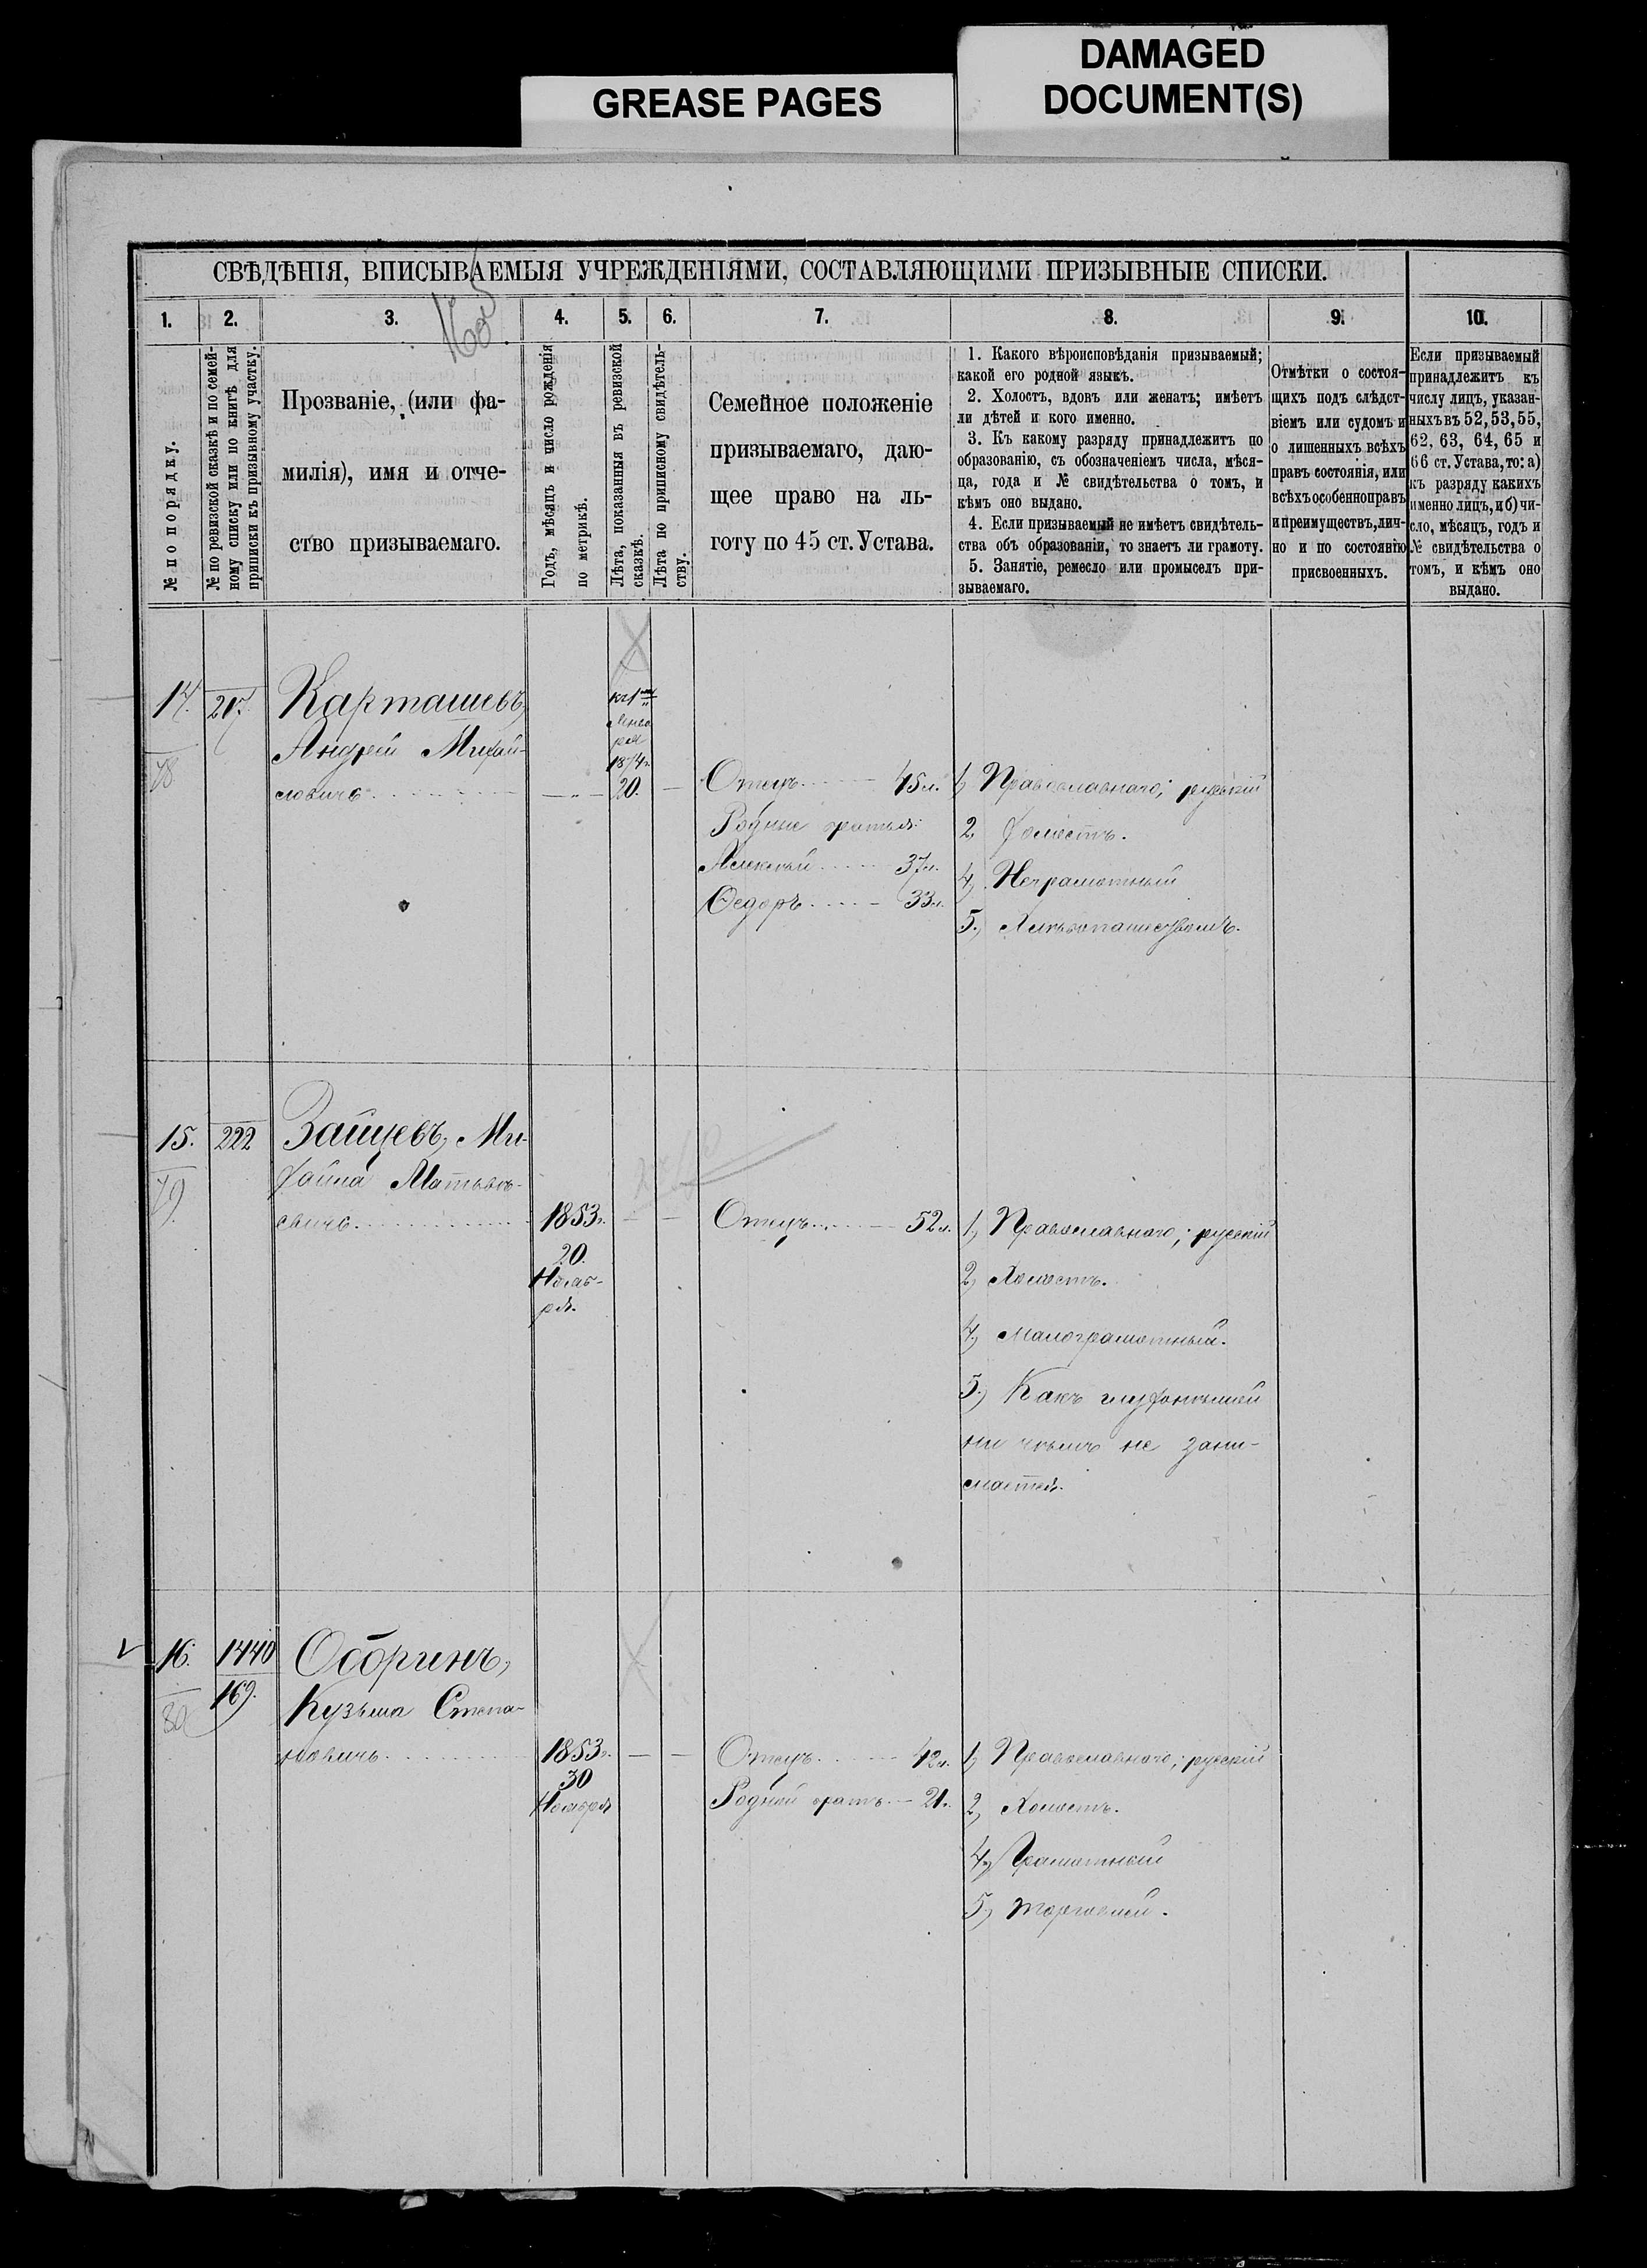 DAMAGED
DOCUMENT(S)
GREASE PAGES
СВѢДѢНІЯ, ВПИСЫВАЕМЫЯ УЧРЕЖДЕНІЯМИ, СОСТАВЛЯЮЩИМИ ПРИЗЫВНЫЕ СПИСКИ.
1.
2.
3.
4.
5.
6.
7.
8.
9.
10.
№ по порядку.
№ по ревизской сказкѣ и по семей-
ному списку или по книгѣ для
приписки къ призывному участку.
Прозваніе, (или фа-
милія), имя и отче-
ство призываемаго.
Годъ, мѣсяцъ и число рожденія
по метрикѣ.
Лѣта, показанныя въ ревизской
сказкѣ.
Лѣта по приписному свидѣтель-
ству.
Семейное положеніе
призываемаго, даю-
щее право на ль-
готу по 45 ст. Устава.
1. Какого вѣроисповѣданія призываемый;
какой его родной языкъ.
2. Холостъ, вдовъ или женатъ; имѣетъ
ли дѣтей и кого именно.
3. Къ какому разряду принадлежитъ по
образованію, съ обозначеніемъ числа, мѣся-
ца, года и № свидѣтельства о томъ, и
кѣмъ оно выдано.
4. Если призываемый не имѣетъ свидѣтель-
ства объ образованіи, то знаетъ ли грамоту.
5. Занятіе, ремесло или промыселъ при-
зываемаго.
Отмѣтки о состоя-
щихъ подъ слѣдст-
віемъ или судомъ и
о лишенныхъ всѣхъ
правъ состоянія, или
всѣхъ особенно правъ
и преимуществъ, лич-
но и по состоянію
присвоенныхъ.
Если призываемый
принадлежитъ къ
числу лицъ, указан-
ныхъ въ 52, 53, 55,
62, 63, 64, 65 и
66 ст. Устава, то: а)
къ разряду какихъ
именно лицъ, и б) чи-
сло, мѣсяцъ, годъ и
№ свидѣтельства о
томъ, и кѣмъ оно
выдано.
14.
78
217.
Карташевъ,
Андрей Михай-
ловичъ
1874 г.
20.
Отецъ 45 л.
Родные братья:
Алексѣй 37 л.
Ѳедоръ 33 л.
1, Православнаго; русскій
2, Холостъ.
4, Неграмотный
5, Хлѣбопашествомъ.
15.
79
222
Зайцевъ, Ми-
хаила Матвѣ-
евичъ
1853 г.
20.
Нояб-
ря.
Отецъ 52 л.
1, Православнаго; русскій
2, Холостъ.
4, Малограмотный.
5, Какъ глухонѣмой
ни чѣмъ не зани-
мается.
16.
80
1440
169.
Осоринъ,
Кузьма Степа-
новичъ
1853 г.
30
Ноября
Отецъ 42 л.
Родной братъ 21 л.
1, Православнаго; русскій
2, Холостъ.
4, Грамотный
5, Торговлей.